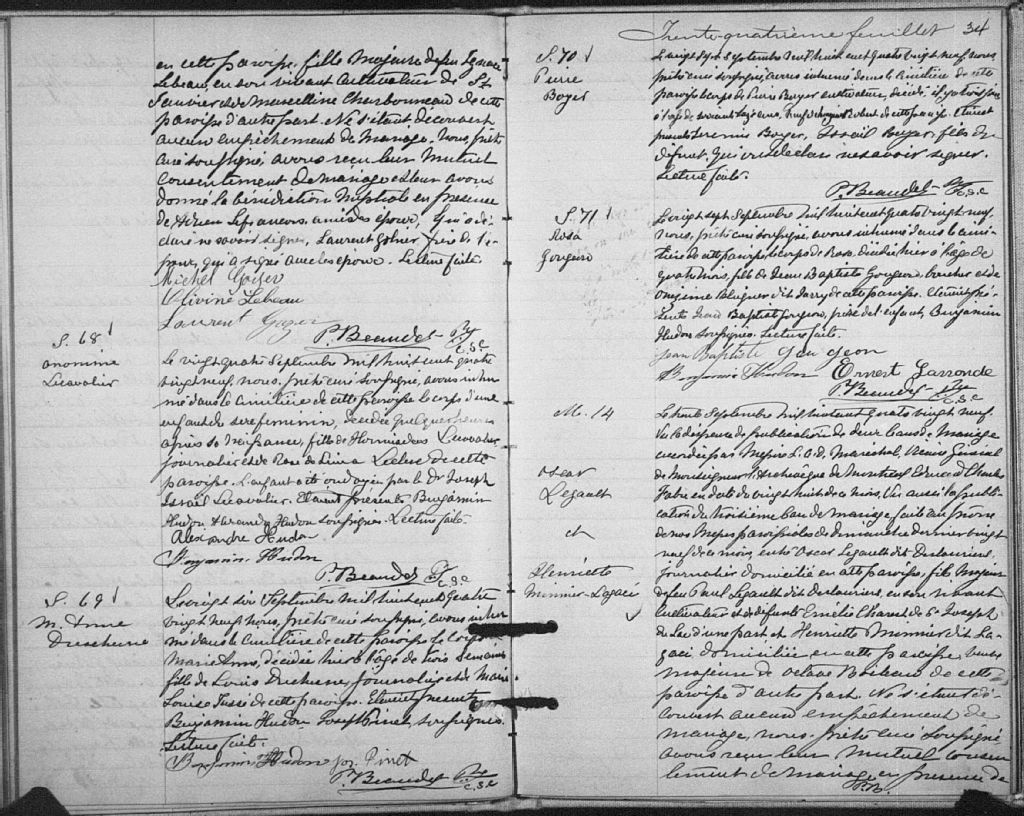 en cette paroisse, fille majeure de feu
Lebeau, en son vivant cultivateur de St
Janvier et de Marcelline Charbonneau de cette
paroisse d'autre part. Ne s'étant découvert
aucun empêchement de mariage, nous, prêtre
curé soussigné, avons reçu leur mutuel
consentement de mariage et leur avons
donné la bénédiction nuptiale en présence
de Adrien Lefrancois, ami de l'époux, qui a dé-
claré ne savoir signer, Laurent frère de l'é-
poux, qui a signé avec les époux. Lecture faite.
Michel
Olivine Lebeau
Laurent
P. Beaudet Ptre
C.S.C
S. 68
anonime
Lecavalier
Le vingt quatre Septembre mil huit cent quatre
vingt neuf, nous, prêtre curé soussigné, avons inhu-
mé dans le cimetière de cette paroisse le corps d'une
enfant du sexe feminin, décédée quelques heures
après sa naissance, fille de Hormisdas Lecavalier
journalier et de Rose de Lima Leclerc de cette
paroisse. L'enfant a été ondoyée par le Dr Joseph
Israël Lecavalier. Etaient présents Benjamin
Hudon Alexandre Hudon soussignés. Lecture faite.
Alexandre Hudon
Benjamin Hudon
P. Beaudet Ptre
C.S.C
S. 69
M. Anne
Duschesne
Le vingt six Septembre mil huit cent quatre
vingt neuf nous, prêtre curé soussigné, avons inhu-
mé dans le cimetière de cette paroisse le corps
Marie Anne, décédée hier à l'âge de trois semaines
fille de Louis Duchesne, journalier et de Marie
Louise de cette paroisse. Etaient présents
Benjamin Hudon Joseph Pinet, soussignés.
Lecture faite.
Benjamin Hudon Jos. Pinet
P. Beaudet Ptre
C.S.C
Trente-quatrième feuillet 34
S. 70
Pierre
Boyer
Le vingt Septembre mil huit cent quatre vingt neuf, nous,
prêtre curé soussigné, avons inhumé dans le cimetière de cette
paroisse le corps de Pierre Boyer cultivateur, décédé
à l'âge de soixante de cette paroisse. Etaient
présents Jeremie Boyer, Israël Boyer, fils du
défunt, qui ont déclaré ne savoir signer.
Lecture faite.
P. Beaudet Ptre
C.S.C
S. 71
Rosa
Gougeon
Le vingt sept Septembre mil huit cent quatre vingt neuf,
nous, prêtre curé soussigné, avons inhumé dans le cime-
tière de cette paroisse le corps de Rosa, décédée hier à l'âge de
quatre mois, fille de Jean Baptiste Gougeon, boucher et de
Onésime dit Jarry de cette paroisse. Etaient pré-
sents Jean Baptiste Gougeon, père de l'enfant, Benjamin
Hudon soussignés. Lecture faite.
Jean Baptiste Gougeon
Benjamin Hudon Ernest Larronde
P. Beaudet Ptre
C.S.C
M. 14
Oscar
Legault
et
Henriette
Meunier-Lagacé
Le trente Septembre mil huit cent quatre vingt neuf,
Vu la dispense de publication de deux bans de mariage
accordée par Messire L. D. A. Maréchal, Vicaire Général
de Monseigneur l'Archevêque de Montréal Edouard Charles
Fabre en date du vingt huit de ce mois, Vu aussi la publi-
cation du troisième ban de mariage faite au prône
de nos Messes paroissiales de dimanche dernier vingt
neuf de ce mois, entre Oscar Legault dit Deslauriers,
journalier domicilié en cette paroisse, fils majeur
de feu Paul Legault dit Deslauriers, en son vivant
cultivateur et de défunte Emélie Charest de St Joseph
du Lac d'une part et Henriette Meunier dit La-
gacé domiciliée en cette paroisse, veuve
majeure de Octave Boileau de cette
paroisse d'autre part. Ne s'étant dé-
couvert aucun empêchement de
mariage, nous, prêtre curé soussigné
avons reçu leur mutuel consen-
tement de mariage en présence de
P.B.